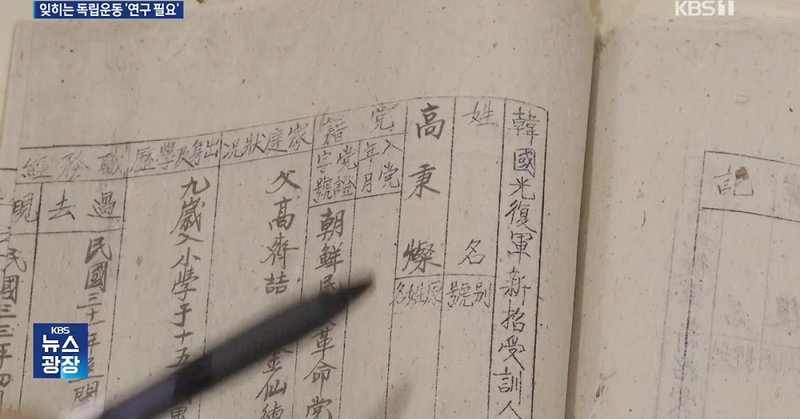 잊히는 독립운동 '연구 필요'
KBS1
記
韓國光復軍新招受訓人
姓名
別號
高秉燦
原姓名
党籍
入党年月
党證字號
朝鮮民革命党
家庭狀況
父高齊詰
金仙
出身及學歷
九歲入小學于十五
職務經
過去
民國三十一年
現
民國三三年四
KBS
뉴스
광장